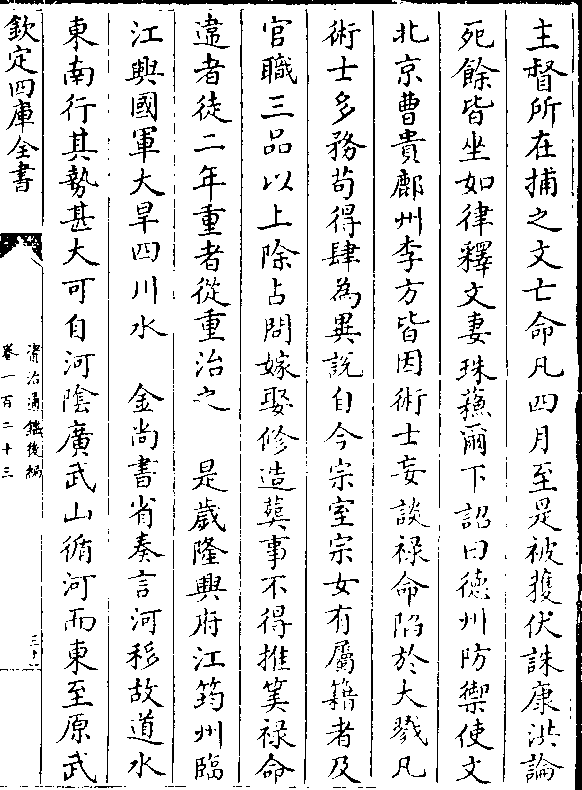 主督所在捕之文亡命凡四月至是被獲伏誅康洪論
死餘皆坐如律釋文妻珠蘓爾下詔曰徳州防禦使文
北京曹貴鄜州李方皆因術士妄談禄命陷於大戮凡
術士多務苟得肆為異說自今宗室宗女有屬籍者及
官職三品以上除占問嫁娶修造葬事不得推算禄命
違者徒二年重者從重治之　是歲隆興府江筠州臨
江興國軍大旱四川水　金尚書省奏言河移故道水
東南行其勢甚大可自河陰廣武山循河而東至原武
欽定四庫全書
資治通鑑後編
卷一百二十三